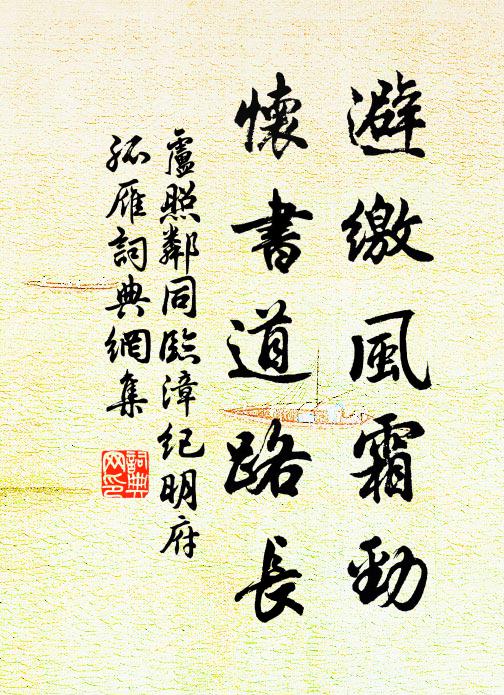 避繳風霜勁
懷書道路長
盧照鄰同臨漳紀明府
孤雁詞典網集
詞典
网印